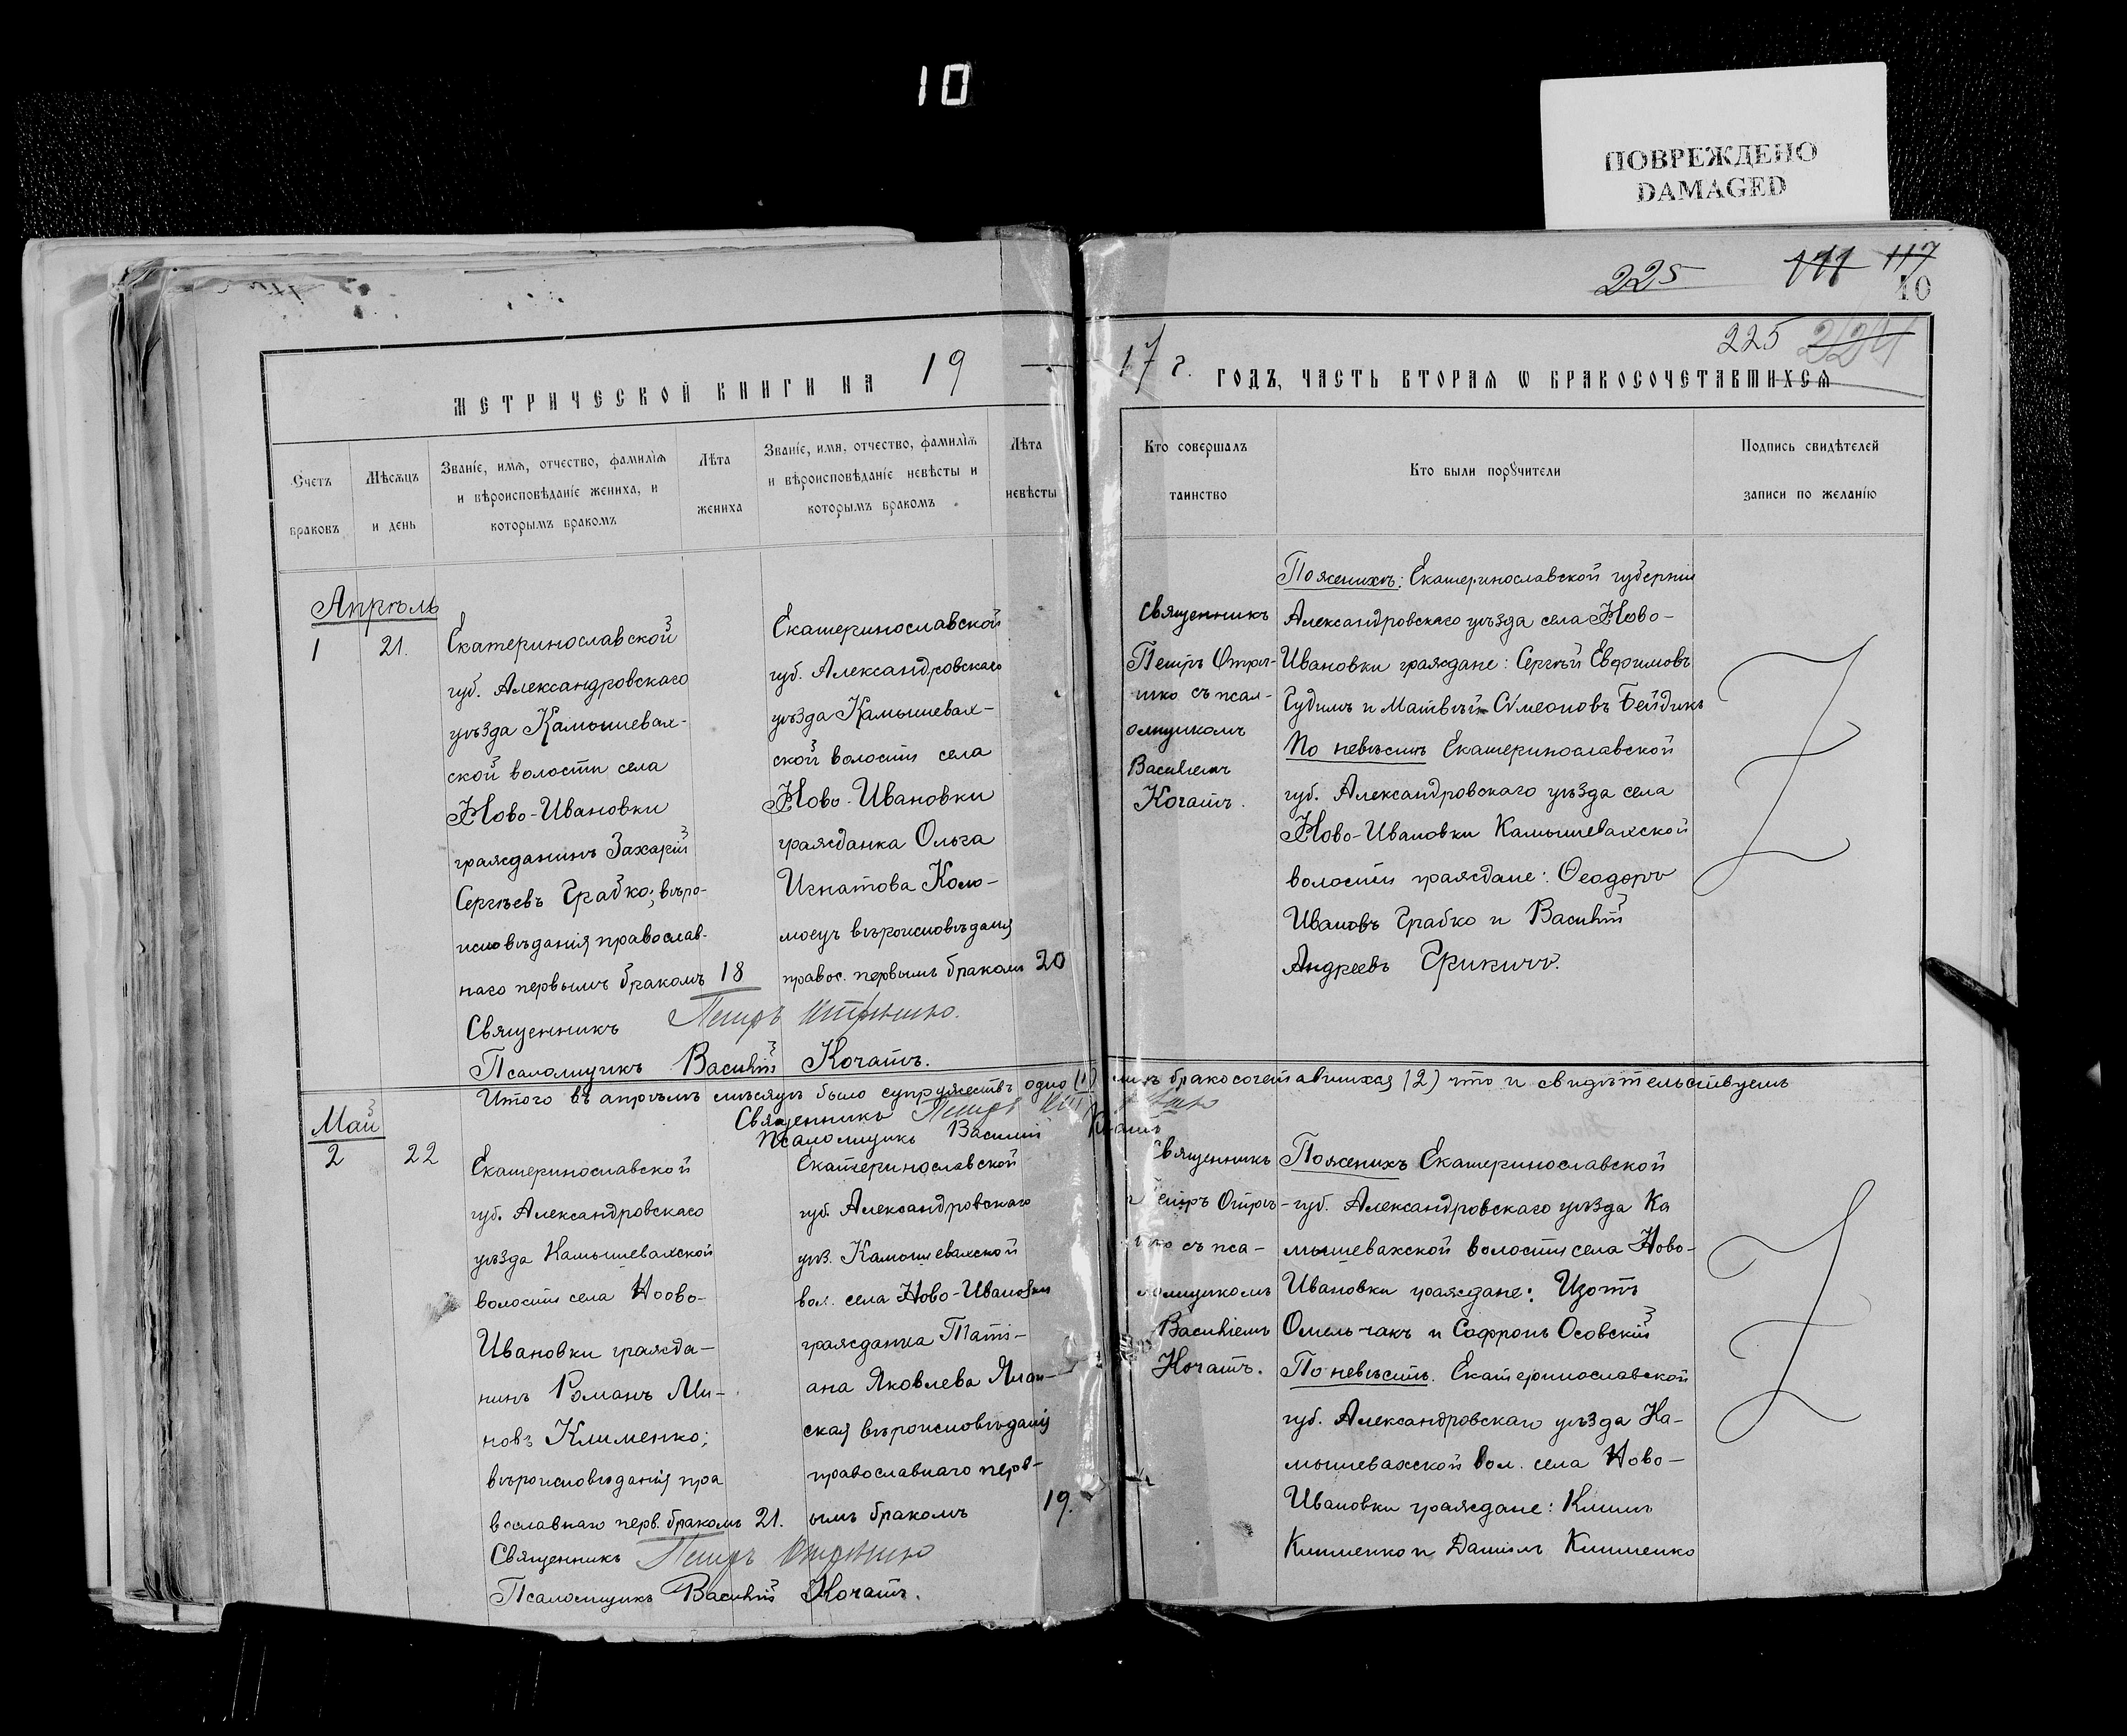 10
ПОВРЕЖДЕНО
DAMAGED
225 111 117
10
225 224
МЕТРИЧЕСКОЙ КНИГИ НА 19
17 г. ГОДЪ, ЧАСТЬ ВТОРАѦ Ѡ БРАКОСОЧЕТАВШИХСѦ
Счетъ
браковъ
Мѣсѧцъ
и день
Званіе, имѧ, отчество, фамиліѧ
и вѣроисповѣданіе жениха, и
которымъ бракомъ
Лѣта
жениха
Званіе, имя, отчество, фамиліѧ
и вѣроисповѣданіе невѣсты и
которымъ бракомъ
Лѣта
невѣсты
Кто совершалъ
таинство
Кто были порꙋчители
Подпись свидѣтелей
записи по желанію
Апрѣль
1 21.
Екатеринославской
губ. Александровскаго
уѣзда Камышевах-
ской волости села
Ново-Ивановки
гражданинъ Захарій
Сергѣевъ Грабко; вѣро-
исповѣданія православ-
наго первымъ бракомъ 18
Екатеринославской
губ. Александровскаго
уѣзда Камышевах-
ской волости села
Ново-Ивановки
гражданка Ольга
Игнатова Коло-
моецъ вѣроисповѣданія
правос. первымъ бракомъ 20
Священникъ Петръ
Псаломщикъ Василій Кочатъ.
Священникъ
Петръ
съ псал-
омщикомъ
Василіемъ
Кочатъ.
По женихѣ: Екатеринославской губерніи
Александровскаго уѣзда села Ново-
Ивановки граждане: Сергѣй Евфимовъ
Гудимъ и Матвѣй Сѵмеоновъ Бейдикъ
По невѣстѣ Екатеринославской
губ. Александровскаго уѣзда села
Ново-Ивановки Камышевахской
волости граждане: Ѳеодоръ
Ивановъ Грабко и Василій
Андреевъ
Итого въ апрѣлѣ мѣсяцѣ было супружествъ одно (1) лицъ бракосочетавшихся (2) что и свидѣтельствуемъ
Священникъ Петръ
Псаломщикъ Василій Кочатъ
Май
2 22
Екатеринославской
губ. Александровскаго
уѣзда Камышевахской
волости села Ново-
Ивановки гражда-
нинъ Романъ Ми-
новъ Клименко;
вѣроисповѣданія пра
вославнаго перв. бракомъ 21.
Екатеринославской
губ. Александровскаго
уѣз. Камышевахской
вол. села Ново-Ивановки
гражданка Таті-
ана Яковлева
ская вѣроисповѣданія
православнаго перв-
ымъ бракомъ 19.
Священникъ Петръ
Псаломщикъ Василій Кочатъ.
Священникъ
Петръ
съ пса-
ломщикомъ
Василіемъ
Кочатъ.
По женихѣ Екатеринославской
губ. Александровскаго уѣзда Ка
мышевахской волости села Ново-
Ивановки граждане: Изотъ
Омельчакъ и Софронъ Осовскій
По невѣстѣ. Екатеринославской
губ. Александровскаго уѣзда Ка-
мышевахской вол. села Ново-
Ивановки граждане: Климъ
Клименко и Даніилъ Клименко